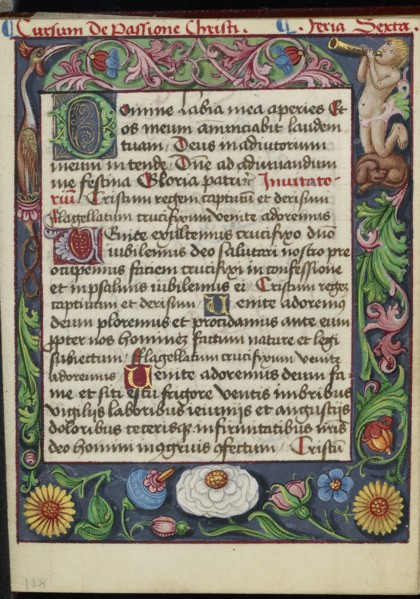 Cursum De Passione Christi. Feria Sexta.
Domine labia mea aperies Et
os meum annunciabit laudem
tuam / Deus in adiutorium
meum intende Dne ad adiuuandum
me festina Gloria patri Inuitato-
riu / Cristum regem captum et derisum
flagellatum crucifixum uenite adoremus
Venite exultemus crucifixo dno
iubilemus deo salutari nostro pre
occupemus faciem crucifixi in confessione
et in psalmis iubilemus ei Cristum regez
captum et derisum / Uenite adoremus
deum ploremus et procidamus ante eum
propter nos hominez factum nature et legi
subiectum / flagellatum crucifixum uenite
adoremus Uenite adoremus deum fa-
me et siti frigore ventis imbribus
vigilijs laboribus ieiunijs et angustijs
doloribus ceterisq infirmitatibus nris
deo homini Cristu
128